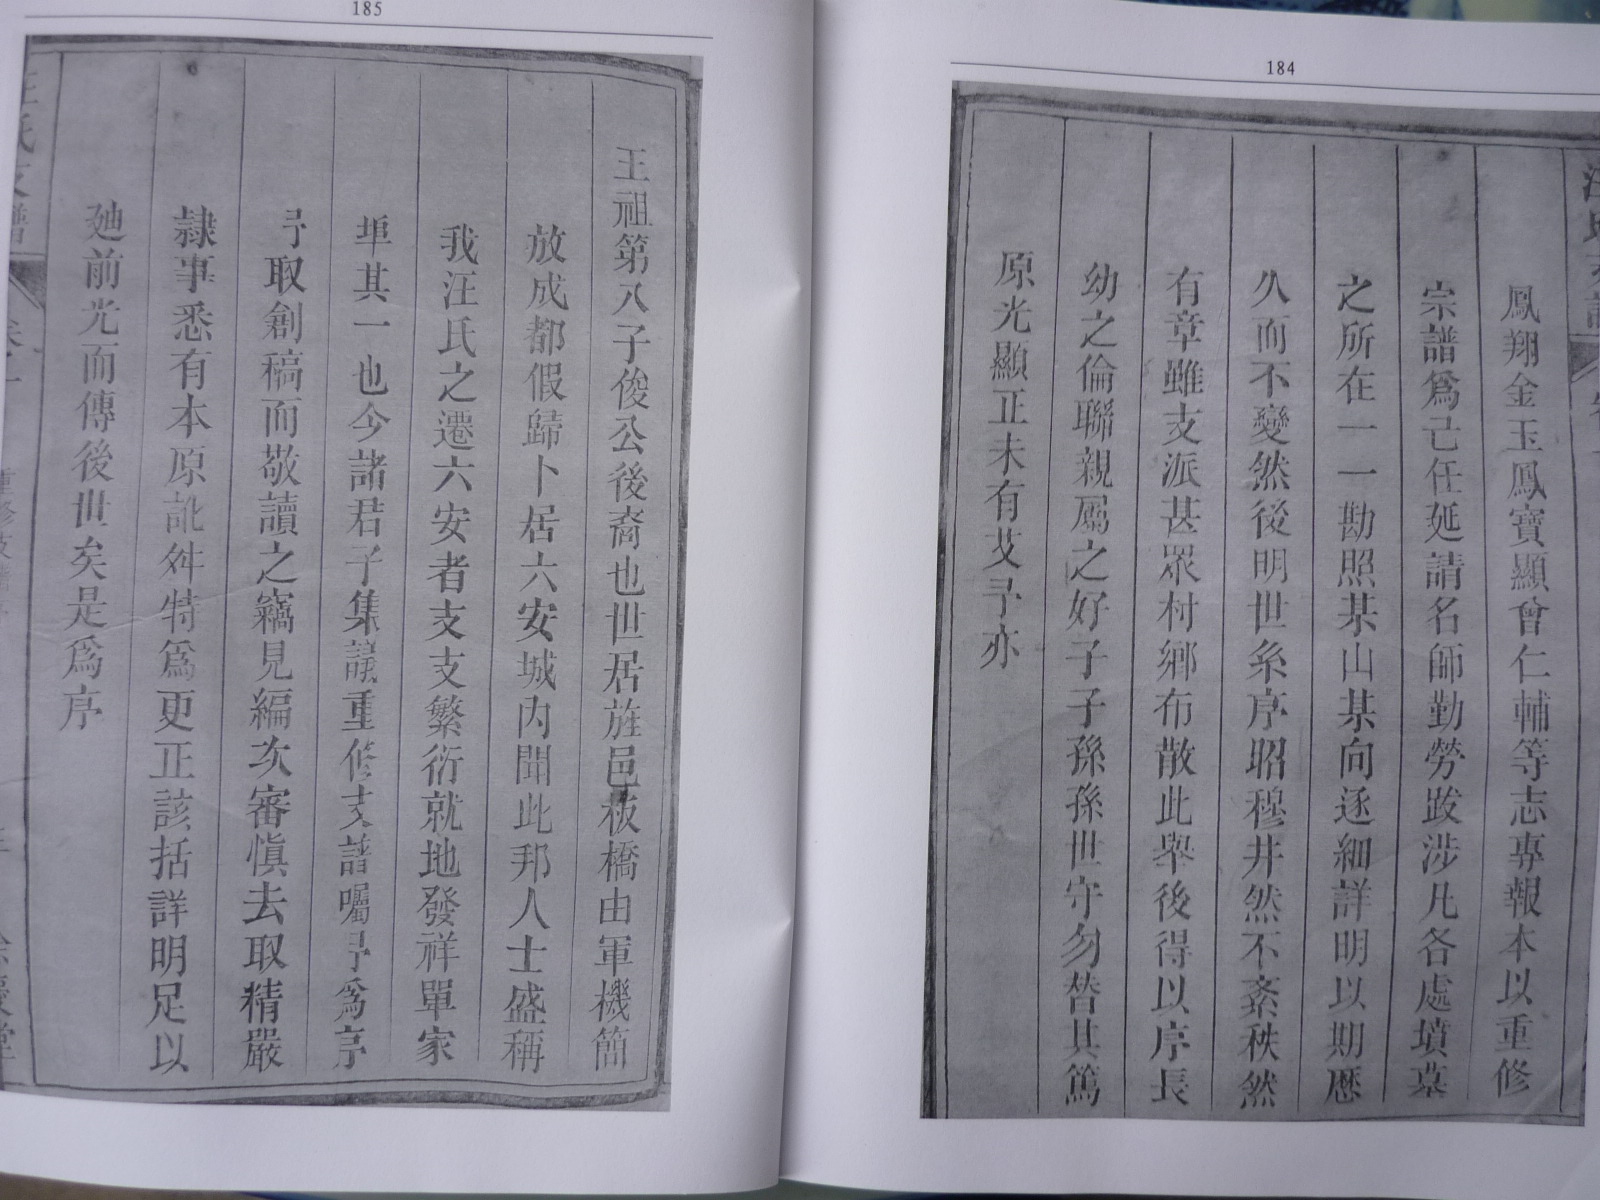 184
鳳翔金玉鳳寶顯曾仁輔等志專報本以重修
宗譜爲己任延請名師勤勞跋涉凡各處墳墓
之所在一一勘照某山某向逐細詳明以期歷
久而不變然後明世系序昭穆井然不紊秩然
有章雖支派甚眾村鄉布散此舉後得以序長
幼之倫聯親屬之好子子孫孫世守勿替其篤
原光顯正未有艾予亦
185
王祖第八子俊公後裔也世居旌邑板橋由軍機簡
放成都假歸卜居六安城內聞此邦人士盛稱
我汪氏之遷六安者支支繁衍就地發祥單家
埠其一也今諸君子集議重修支譜囑予爲序
予取創稿而敬讀之竊見編次審慎去取精嚴
隸事悉有本原訛舛特爲更正該括詳明足以
廸前光而傳後世矣是爲序